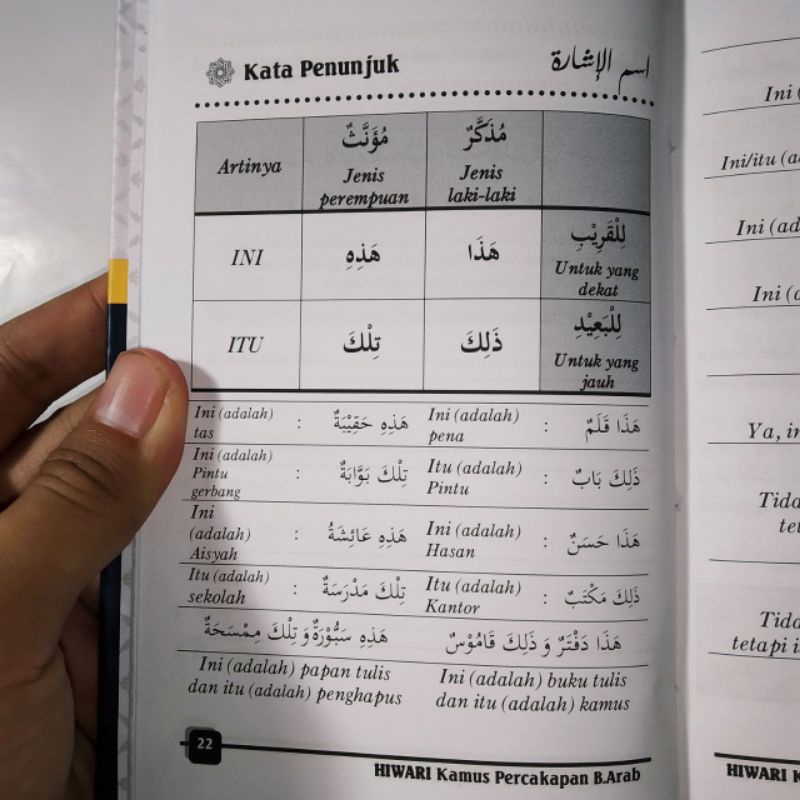 Kata Penunjuk
اسم الإشارة
Artinya
مُؤَنَّثٌ
Jenis
perempuan
مُذَكَّرٌ
Jenis
laki-laki
INI
هَذِهِ
هَذَا
لِلْقَرِيْبِ
Untuk yang
dekat
ITU
تِلْكَ
ذَلِكَ
لِلْبَعِيْدِ
Untuk yang
jauh
هَذَا قَلَمٌ :
Ini (adalah)
pena
هَذِهِ حَقِيْبَةٌ :
Ini (adalah)
tas
ذَلِكَ بَابٌ :
Itu (adalah)
Pintu
تِلْكَ بَوَّابَةٌ :
Ini (adalah)
Pintu
gerbang
هَذَا حَسَنٌ :
Ini (adalah)
Hasan
هَذِهِ عَائِشَةُ :
Ini
(adalah)
Aisyah
ذَلِكَ مَكْتَبٌ :
Itu (adalah)
Kantor
تِلْكَ مَدْرَسَةٌ :
Itu (adalah)
sekolah
هَذَا دَفْتَرٌ وَ ذَلِكَ قَامُوْسٌ
Ini (adalah) buku tulis
dan itu (adalah) kamus
هَذِهِ سَبُّوْرَةٌ وَ تِلْكَ مِمْسَحَةٌ
Ini (adalah) papan tulis
dan itu (adalah) penghapus
22
HIWARI Kamus Percakapan B.Arab
Ini
Ini/itu
Ini
Ini
Ya,
HIWARI